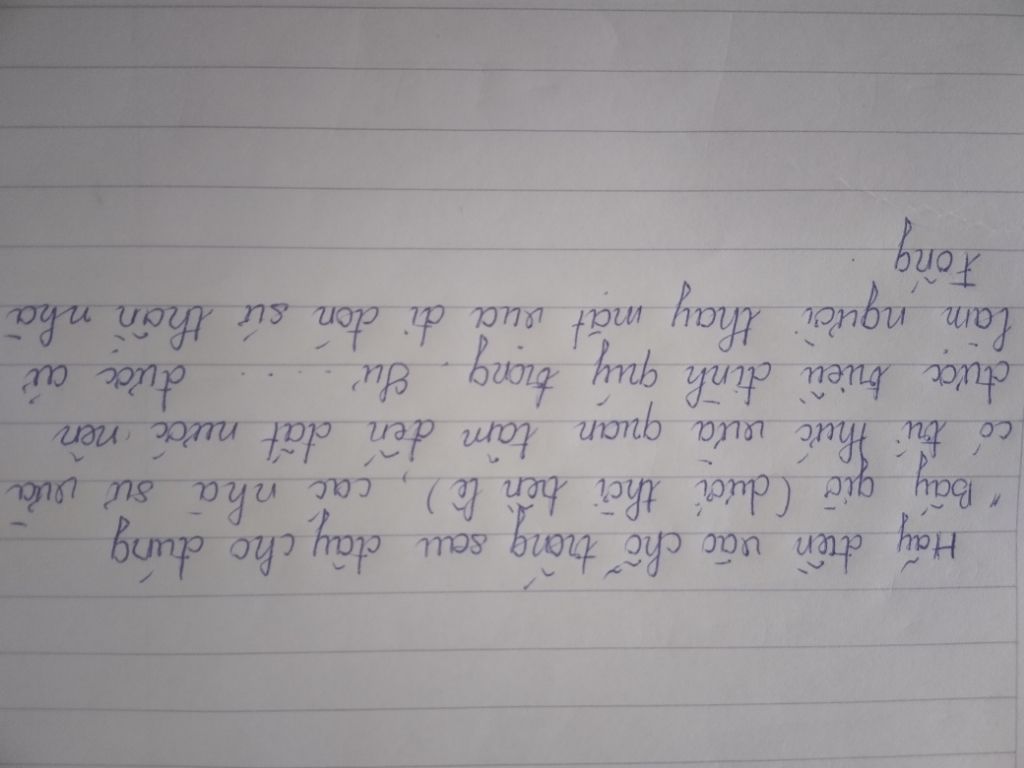 Hãy điền vào chỗ trống sau đây cho đúng
"Bấy giờ (dưới thời tiền lê), các nhà sư vừa
có tri thức vừa quan tâm đến đất nước nên
được triều đình quý trọng. Sư ..... được cử
làm người thay mặt vua đi đón sứ thần nhà
Tống